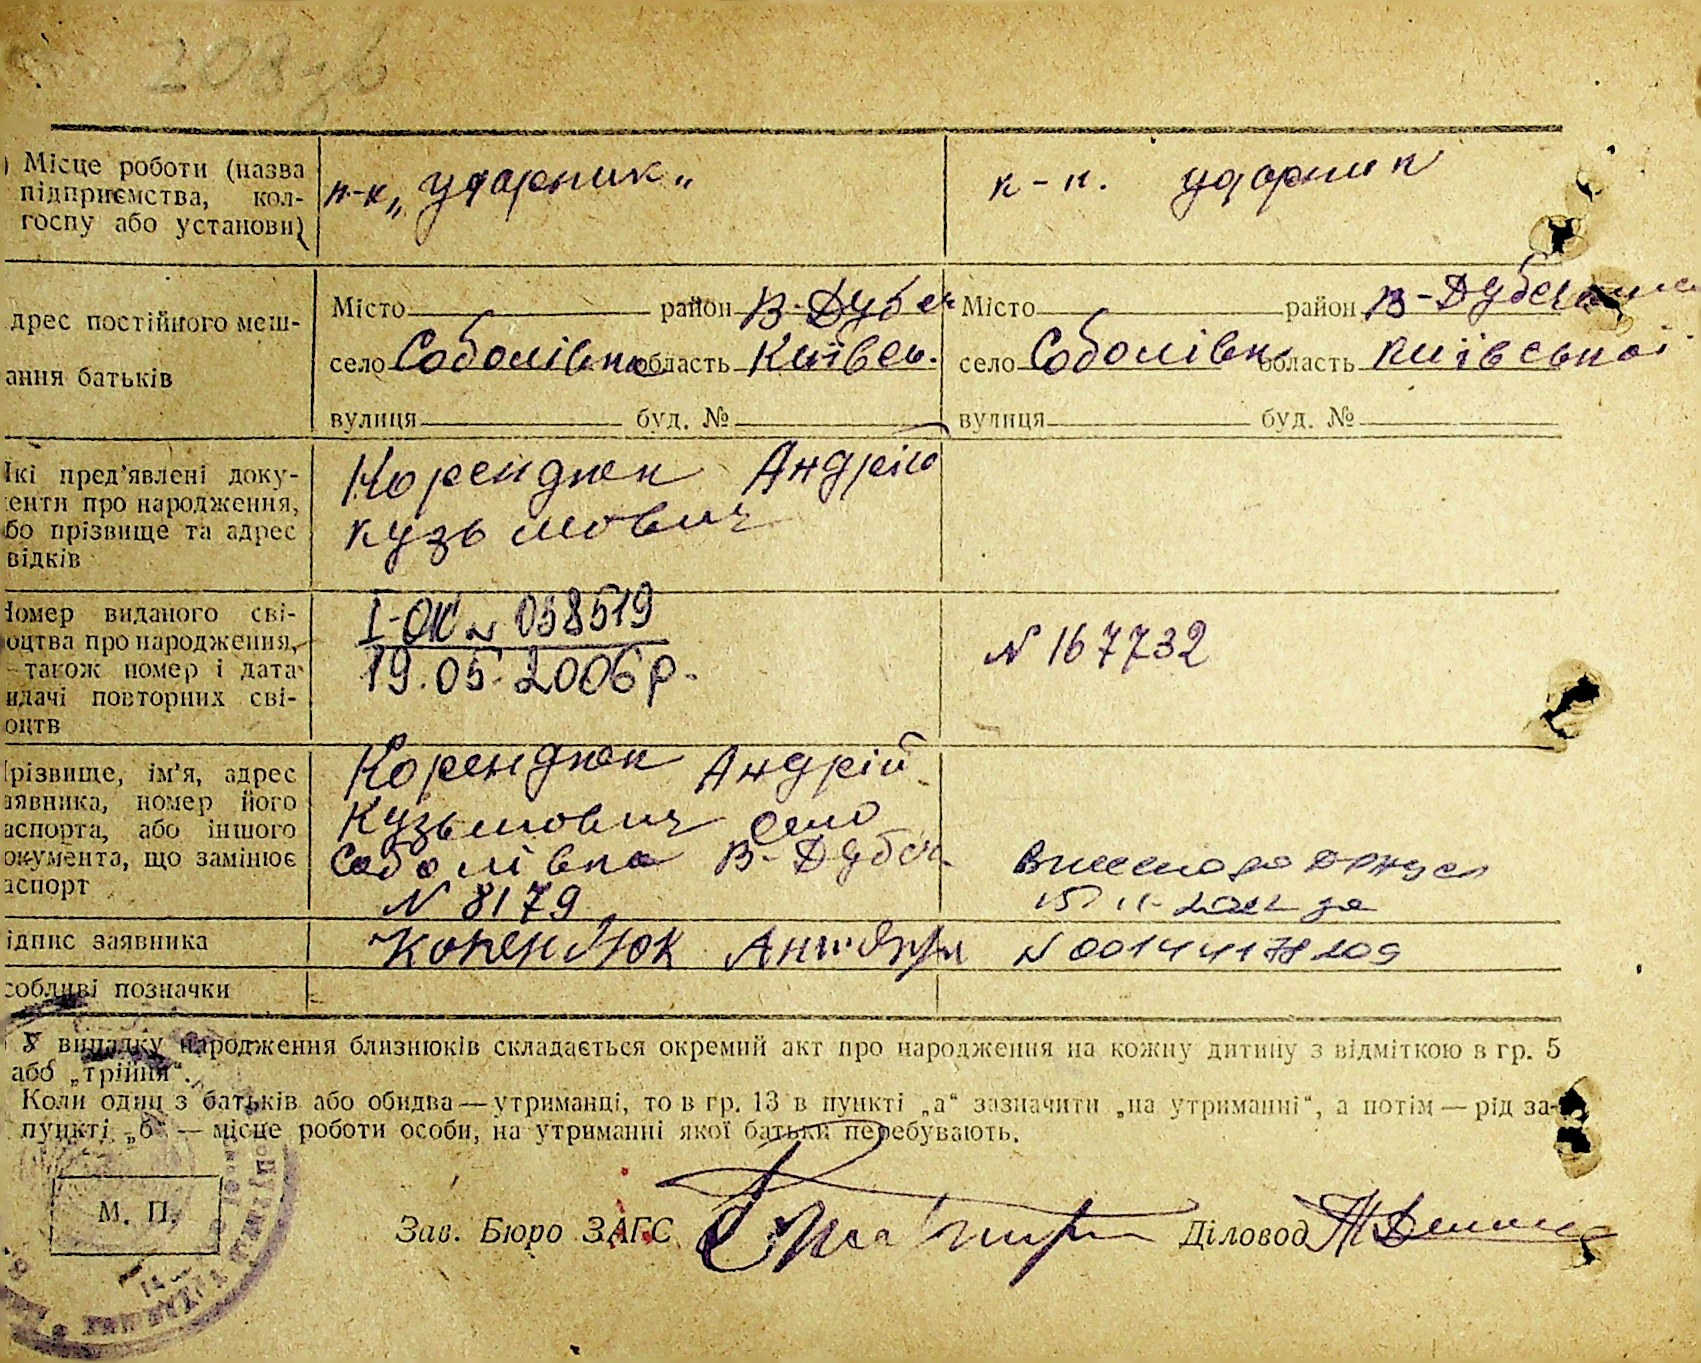 208 зв
) Місце роботи (назва
підприємства, кол-
госпу або установи)
к-к „ударник“
к-к. ударник
дрес постійного меш-
ання батьків
Місто район В-Дубеч
село Соболівка область Київськ.
вулиця буд. №
Місто район В-Дубечанськ
село Соболівка область Київської
вулиця буд. №
Які пред’явлені доку-
енти про народження,
бо прізвище та адрес
відків
Коренджек Андрій
Кузьмович
Номер виданого сві-
оцтва про народження,
також номер і дата
идачі повторних сві-
оцтв
І-ОК № 058519
19.05.2006 р.
N 167732
різвище, ім’я, адрес
аявника, номер його
аспорта, або іншого
окумента, що замінює
аспорт
Коренджек Андрій
Кузьмович село
Соболівка В-Дубеч.
N 8179
15 11
за
N 00144178209
ідпис заявника
собливі позначки
У випадку народження близнюків складається окремий акт про народження на кожну дитину з відміткою в гр. 5
або „трійня“.
Коли один з батьків або обидва — утриманці, то в гр. 13 в пункті „а“ зазначити „на утриманні“, а потім — рід за-
пункті „б“ — місце роботи особи, на утриманні якої батьки перебувають.
М. П.
Зав. Бюро ЗАГС
Діловод